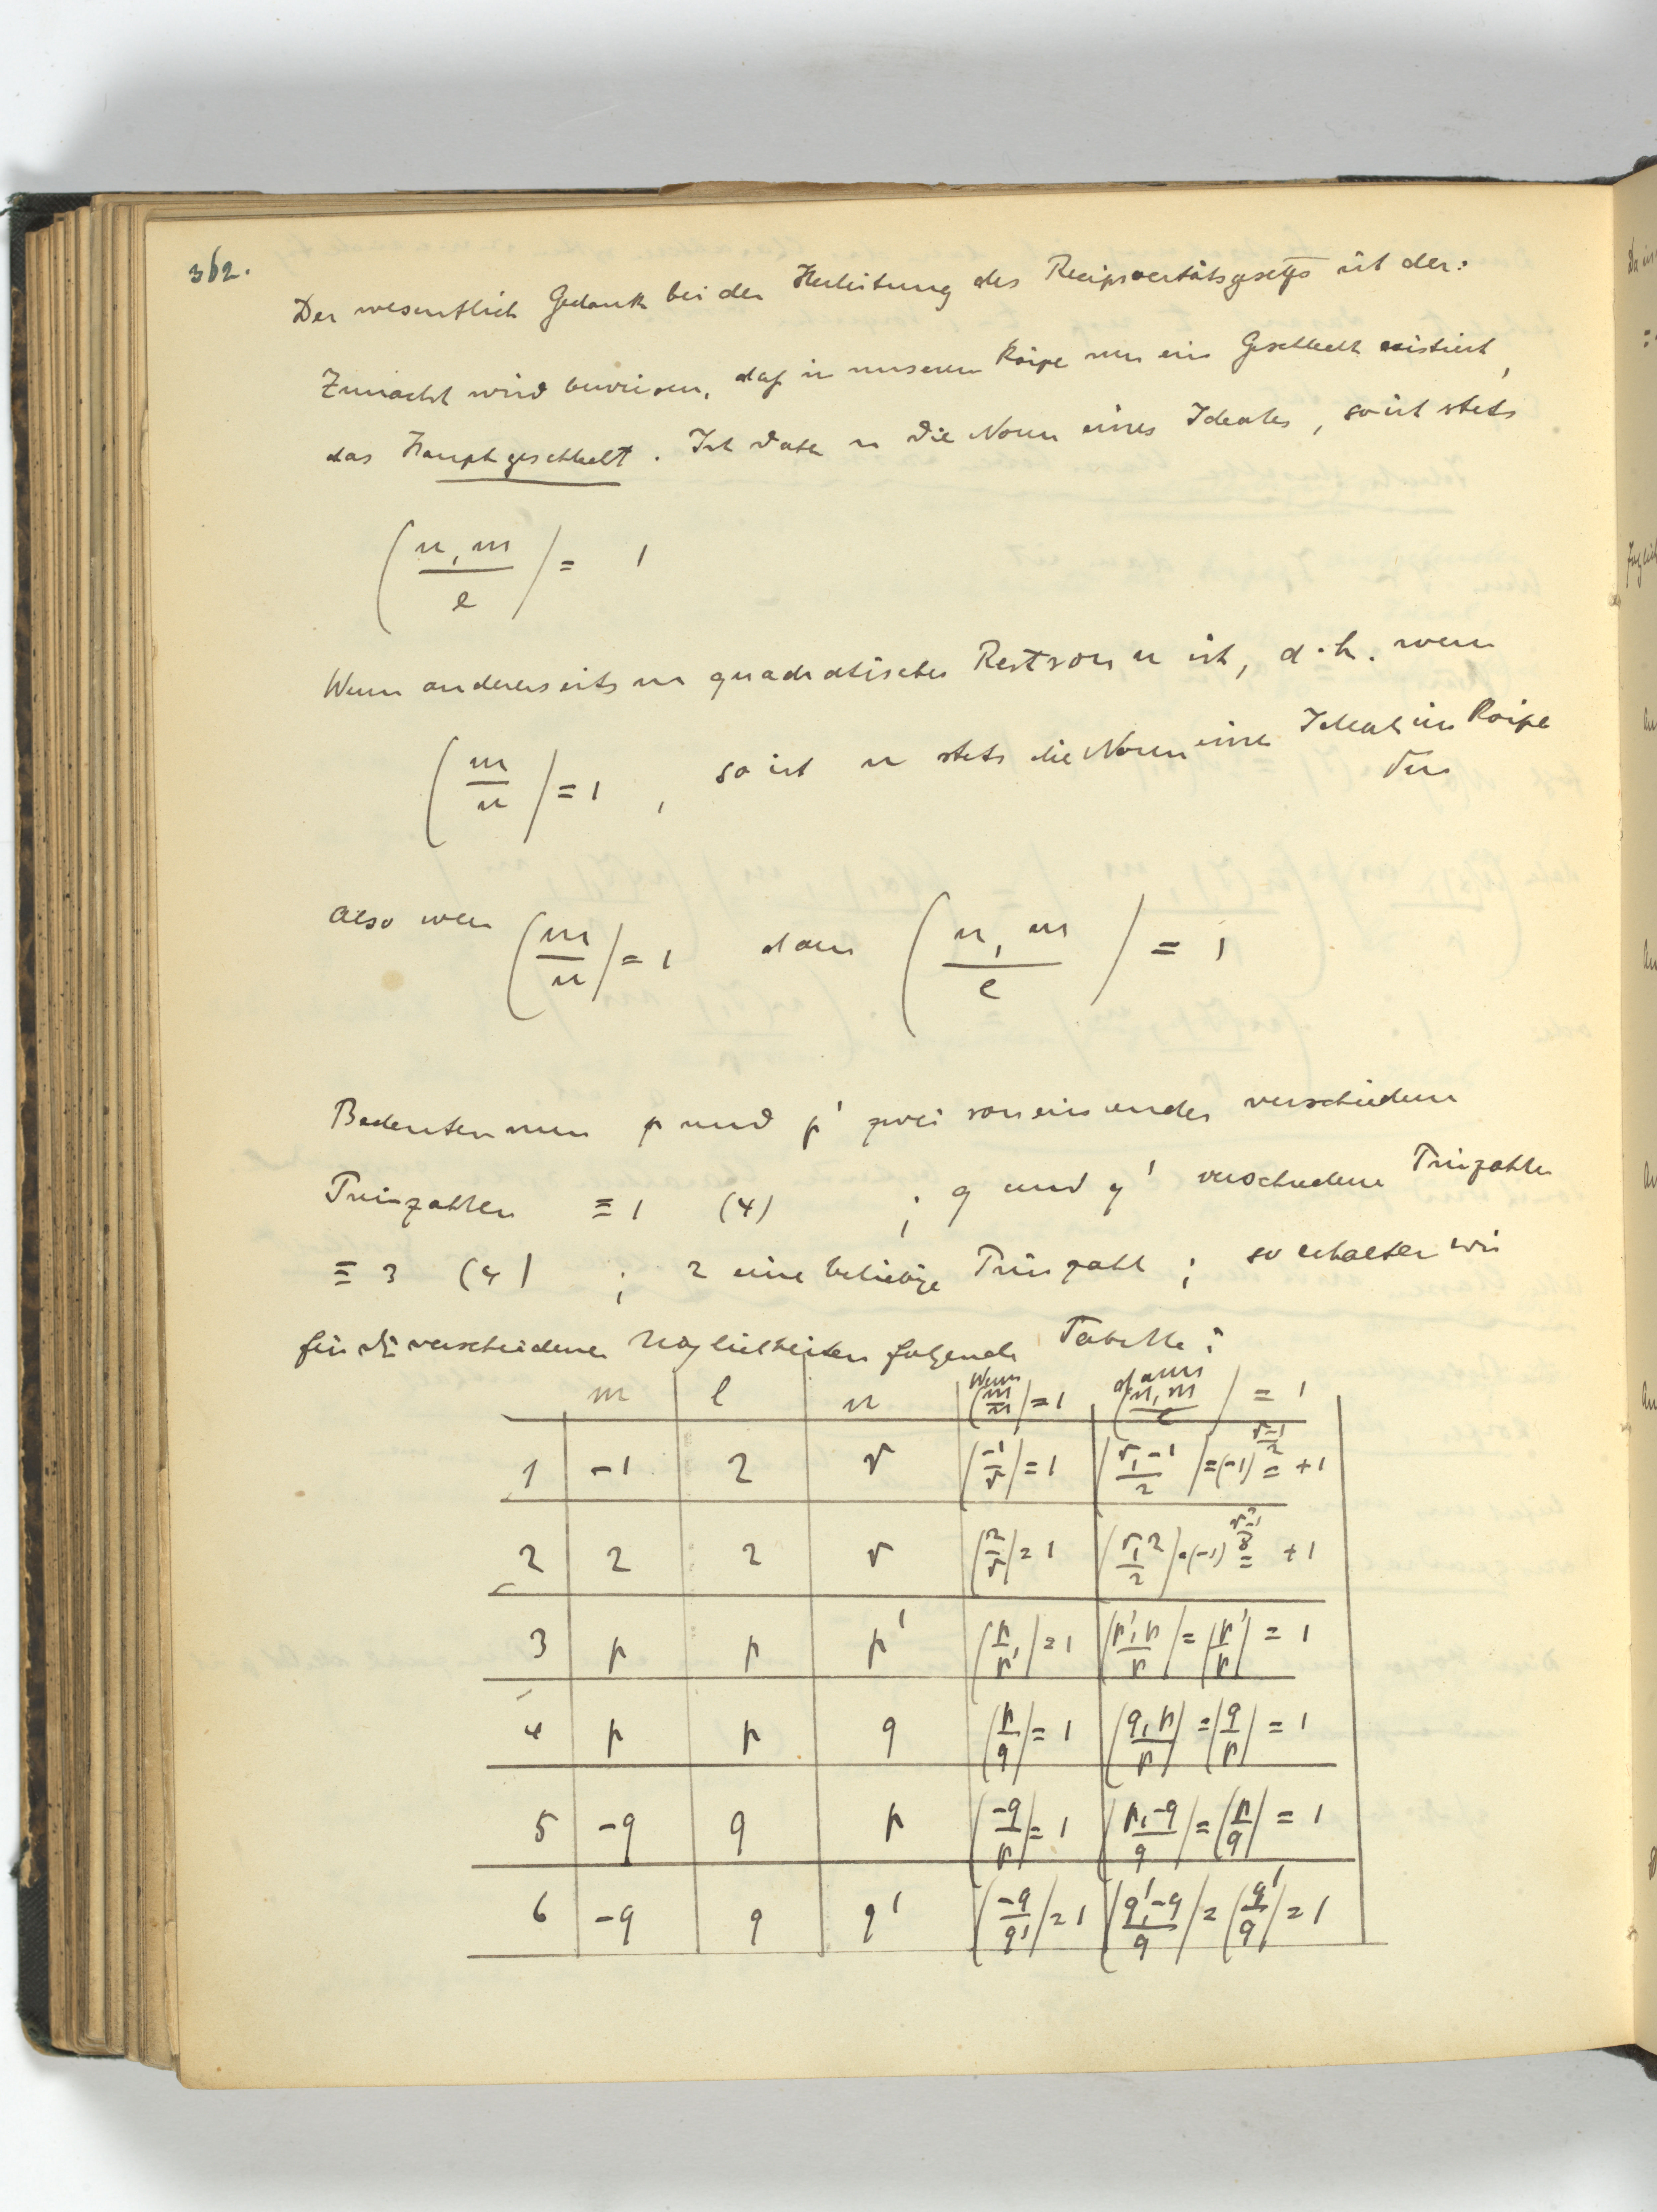 362.
Der wesentlich Gedank bei der Herleitung des Reciprocitätsgesetzs ist der:
Zunächst wird bewiesen, daß in unserem Körpe nur ein Geschlecht existiert,
das Hauptgeschlecht. Ist daher n die Norm eines Ideales, so ist stets
(n, m / l) = 1
Wenn andererseits m quadratischer Rest von n ist, d.h. wenn
(m/n) = 1, so ist n stets die Norm eines Ideals im Körpe
√m
Also wenn (m/n) = 1 dann (n, m / l) = 1
Bedeuten nun p und p' zwei von einander verschiedene
Primzahlen ≡ 1 (4) ; q und q' verschiedene Primzahlen
≡ 3 (4) ; r eine beliebige Primzahl ; so erhalten wir
für die verschiedenen Möglichkeiten folgende Tabelle:
m l n Wenn (m/n) = 1 dann (n, m / l) = 1
1 -1 2 r (-1/r) = 1 (r, -1 / 2) = (-1)^((r-1)/2) = +1
2 2 2 r (2/r) = 1 (r, 2 / 2) = (-1)^((r²-1)/8) = +1
3 p p p' (p/p') = 1 (p', p / p) = (p'/p) = 1
4 p p q (p/q) = 1 (q, p / p) = (q/p) = 1
5 -q q p (-q/p) = 1 (p, -q / q) = (p/q) = 1
6 -q q q' (-q/q') = 1 (q', -q / q) = (q'/q) = 1